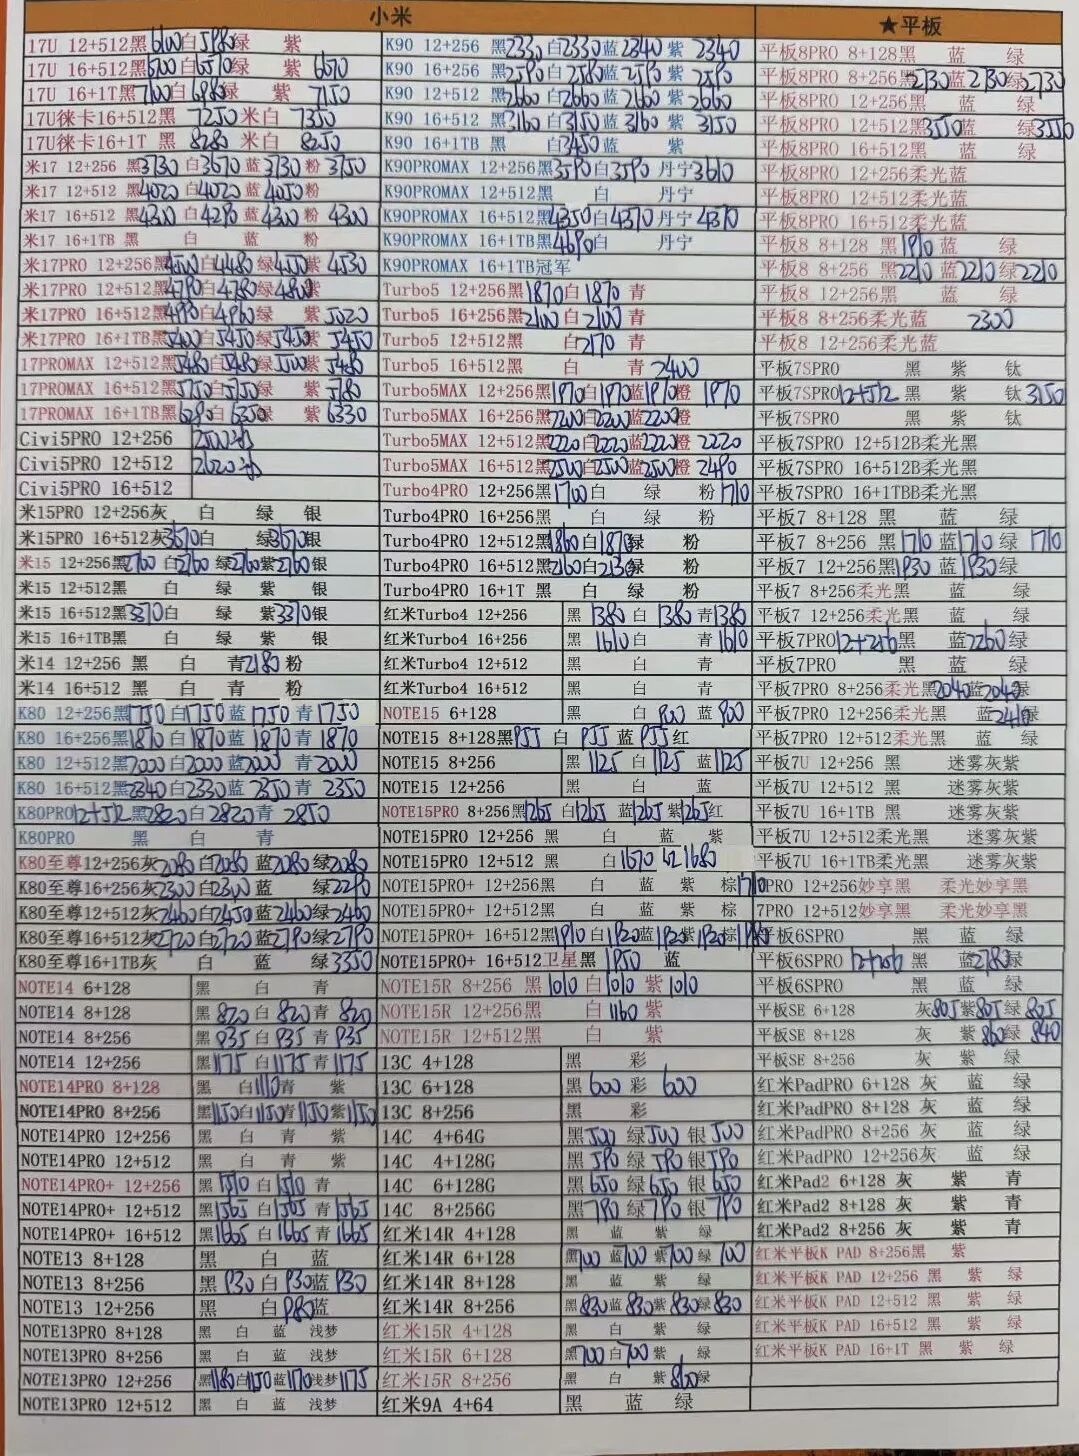 小米
17U 12+512黑6100白5980绿 紫
17U 16+512黑6700白6570绿 紫6670
17U 16+1T黑7100白6980绿 紫7150
17U徕卡16+512黑 7250 米白 7350
17U徕卡16+1T 黑 8280 米白 8250
米17 12+256 黑3730 白3670 蓝3730 粉 3750
米17 12+512 黑4020 白4020 蓝4050 粉
米17 16+512 黑4310 白4290 蓝4300 粉 4300
米17 16+1TB 黑 白 蓝 粉
米17PRO 12+256黑4500白4480绿4550紫 4530
米17PRO 12+512黑4790白4780绿4800紫
米17PRO 16+512黑4990白4960绿 紫 5020
米17PRO 16+1TB黑5400白5450绿5450紫 5450
17PROMAX 12+512黑5480白5480绿5500紫 5480
17PROMAX 16+512黑5750白5750绿 紫 5780
17PROMAX 16+1TB黑6290白6350绿 紫 6330
Civi5PRO 12+256 2500
Civi5PRO 12+512 2620
Civi5PRO 16+512
米15PRO 12+256灰 白 绿 银
米15PRO 16+512灰3670白 绿3670银
米15 12+256黑2760 白2760 绿2760紫2760银
米15 12+512黑 白 绿 紫 银
米15 16+512黑3370白 绿 紫3370银
米15 16+1TB黑 白 绿 紫 银
米14 12+256 黑 白 青2180粉
米14 16+512 黑 白 青 粉
K80 12+256黑1750白1750蓝 1750 青 1750
K80 16+256黑1870白1870蓝 1870 青 1870
K80 12+512黑2000白2000蓝 2000 青 2000
K80 16+512黑2340白2330蓝 2350 青 2350
K80PRO12+512黑2820白2820青 2850
K80PRO 黑 白 青
K80至尊12+256灰2080白2080蓝2080绿2080
K80至尊16+256灰2300白2300蓝 绿2290
K80至尊12+512灰2460白2450蓝2460绿2460
K80至尊16+512灰2720白2720蓝2790绿2790
K80至尊16+1TB灰 白 蓝 绿3350
NOTE14 6+128 黑 白 青
NOTE14 8+128 黑 820 白 820 青 820
NOTE14 8+256 黑 935 白 935 青 935
NOTE14 12+256 黑1175 白1175 青 1175
NOTE14PRO 8+128 黑 白1110青 紫
NOTE14PRO 8+256 黑1150白1150青1150紫1150
NOTE14PRO 12+256 黑 白 青 紫
NOTE14PRO 12+512 黑 白 青 紫
NOTE14PRO+ 12+256 黑1510白1510青
NOTE14PRO+ 12+512 黑1565白1565青1565
NOTE14PRO+ 16+512 黑1665白1665青1665
NOTE13 8+128 黑 白 蓝
NOTE13 8+256 黑 930 白 930蓝 930
NOTE13 12+256 黑 白980蓝
NOTE13PRO 8+128 黑 白 蓝 浅梦
NOTE13PRO 8+256 黑 白 蓝 浅梦
NOTE13PRO 12+256 黑1180白1150蓝1170浅梦1175
NOTE13PRO 12+512 黑 白 蓝 浅梦
K90 12+256 黑2330白2330蓝2340 紫 2340
K90 16+256 黑2590白2580蓝2590 紫 2590
K90 12+512 黑2660白2660蓝2660 紫 2660
K90 16+512 黑3160白3150蓝3160 紫 3150
K90 16+1TB 黑 白3450蓝 紫
K90PROMAX 12+256黑3590白3590 丹宁3610
K90PROMAX 12+512黑 白 丹宁
K90PROMAX 16+512黑4350白4370 丹宁4370
K90PROMAX 16+1TB黑4690白 丹宁
K90PROMAX 16+1TB冠军
Turbo5 12+256黑1870白1870 青
Turbo5 16+256黑2100白2100青
Turbo5 12+512黑 白2170 青
Turbo5 16+512黑 白 青2400
Turbo5MAX 12+256黑1970白1970蓝1970橙 1970
Turbo5MAX 16+256黑2200白2200蓝2200橙
Turbo5MAX 12+512黑2220白2220蓝2220橙 2220
Turbo5MAX 16+512黑2500白2500蓝2500橙 2490
Turbo4PRO 12+256黑1700白 绿 粉1710
Turbo4PRO 16+256黑 白 绿 粉
Turbo4PRO 12+512黑1860白1870绿 粉
Turbo4PRO 16+512黑2160白2130绿 粉
Turbo4PRO 16+1T 黑 白 绿 粉
红米Turbo4 12+256 黑 1380 白 1380 青1380
红米Turbo4 16+256 黑 1610白 青1610
红米Turbo4 12+512 黑 白 青
红米Turbo4 16+512 黑 白 青
NOTE15 6+128 黑 白 900 蓝 900
NOTE15 8+128黑955 白 955 蓝 955红
NOTE15 8+256 黑 1125 白 1125 蓝1125
NOTE15 12+256 黑 白 蓝
NOTE15PRO 8+256黑1265 白1265 蓝1265紫1265红
NOTE15PRO 12+256 黑 白 蓝 紫
NOTE15PRO 12+512 黑 白1670 红1680
NOTE15PRO+ 12+256黑 白 蓝 紫 棕1710
NOTE15PRO+ 12+512黑 白 蓝 紫 棕
NOTE15PRO+ 16+512黑1910白1920蓝1920紫1920棕
NOTE15PRO+ 16+512卫星黑 1950 蓝
NOTE15R 8+256 黑 1010白1010紫1010
NOTE15R 12+256黑 白1160紫
NOTE15R 12+512黑 白 紫
13C 4+128 黑 彩
13C 6+128 黑 600 彩 600
13C 8+256 黑 彩
14C 4+64G 黑 500 绿 500 银 500
14C 4+128G 黑 590 绿 590 银 590
14C 6+128G 黑 650 绿 650 银 650
14C 8+256G 黑790 绿790 银 790
红米14R 4+128 黑 蓝 紫 绿
红米14R 6+128 黑700 蓝700 紫700 绿 700
红米14R 8+128 黑 蓝 紫 绿
红米14R 8+256 黑830蓝830紫830绿830
红米15R 4+128 黑 白 紫 绿
红米15R 6+128 黑700白700紫 绿
红米15R 8+256 黑 白 紫860绿
红米9A 4+64 黑 蓝 绿
★平板
平板8PRO 8+128黑 蓝 绿
平板8PRO 8+256黑2730蓝2730绿2730
平板8PRO 12+256黑 蓝 绿
平板8PRO 12+512黑3550蓝 绿3550
平板8PRO 16+512黑 蓝 绿
平板8PRO 12+256柔光蓝
平板8PRO 12+512柔光蓝
平板8PRO 16+512柔光蓝
平板8 8+128 黑1910 蓝 绿
平板8 8+256 黑2210 蓝2210绿2210
平板8 12+256黑 蓝 绿
平板8 8+256柔光蓝 2300
平板8 12+256柔光蓝
平板7SPRO 黑 紫 钛
平板7SPRO12+512 黑 紫 钛3150
平板7SPRO 黑 紫 钛
平板7SPRO 12+512B柔光黑
平板7SPRO 16+512B柔光黑
平板7SPRO 16+1TBB柔光黑
平板7 8+128 黑 蓝 绿
平板7 8+256 黑1710 蓝1710 绿 1710
平板7 12+256黑1930 蓝1930绿
平板7 8+256柔光黑 蓝 绿
平板7 12+256柔光黑 蓝 绿
平板7PRO12+256黑 蓝2260绿
平板7PRO 黑 蓝 绿
平板7PRO 8+256柔光黑2040蓝2040绿
平板7PRO 12+256柔光黑 蓝2410绿
平板7PRO 12+512柔光黑 蓝 绿
平板7U 12+256 黑 迷雾灰紫
平板7U 12+512 黑 迷雾灰紫
平板7U 16+1TB 黑 迷雾灰紫
平板7U 12+512柔光黑 迷雾灰紫
平板7U 16+1TB柔光黑 迷雾灰紫
7PRO 12+256妙享黑 柔光妙享黑
7PRO 12+512妙享黑 柔光妙享黑
平板6SPRO 黑 蓝 绿
平板6SPRO 12+256 黑 蓝2780绿
平板6SPRO 黑 蓝 绿
平板SE 6+128 灰805紫805绿 805
平板SE 8+128 灰 紫 860绿 840
平板SE 8+256 灰 紫 绿
红米PadPRO 6+128 灰 蓝 绿
红米PadPRO 8+128 灰 蓝 绿
红米PadPRO 8+256 灰 蓝 绿
红米PadPRO 12+256灰 蓝 绿
红米Pad2 6+128 灰 紫 青
红米Pad2 8+128 灰 紫 青
红米Pad2 8+256 灰 紫 青
红米平板K PAD 8+256黑 紫
红米平板K PAD 12+256 黑 紫 绿
红米平板K PAD 12+512 黑 紫 绿
红米平板K PAD 16+512 黑 紫 绿
红米平板K PAD 16+1T 黑 紫 绿